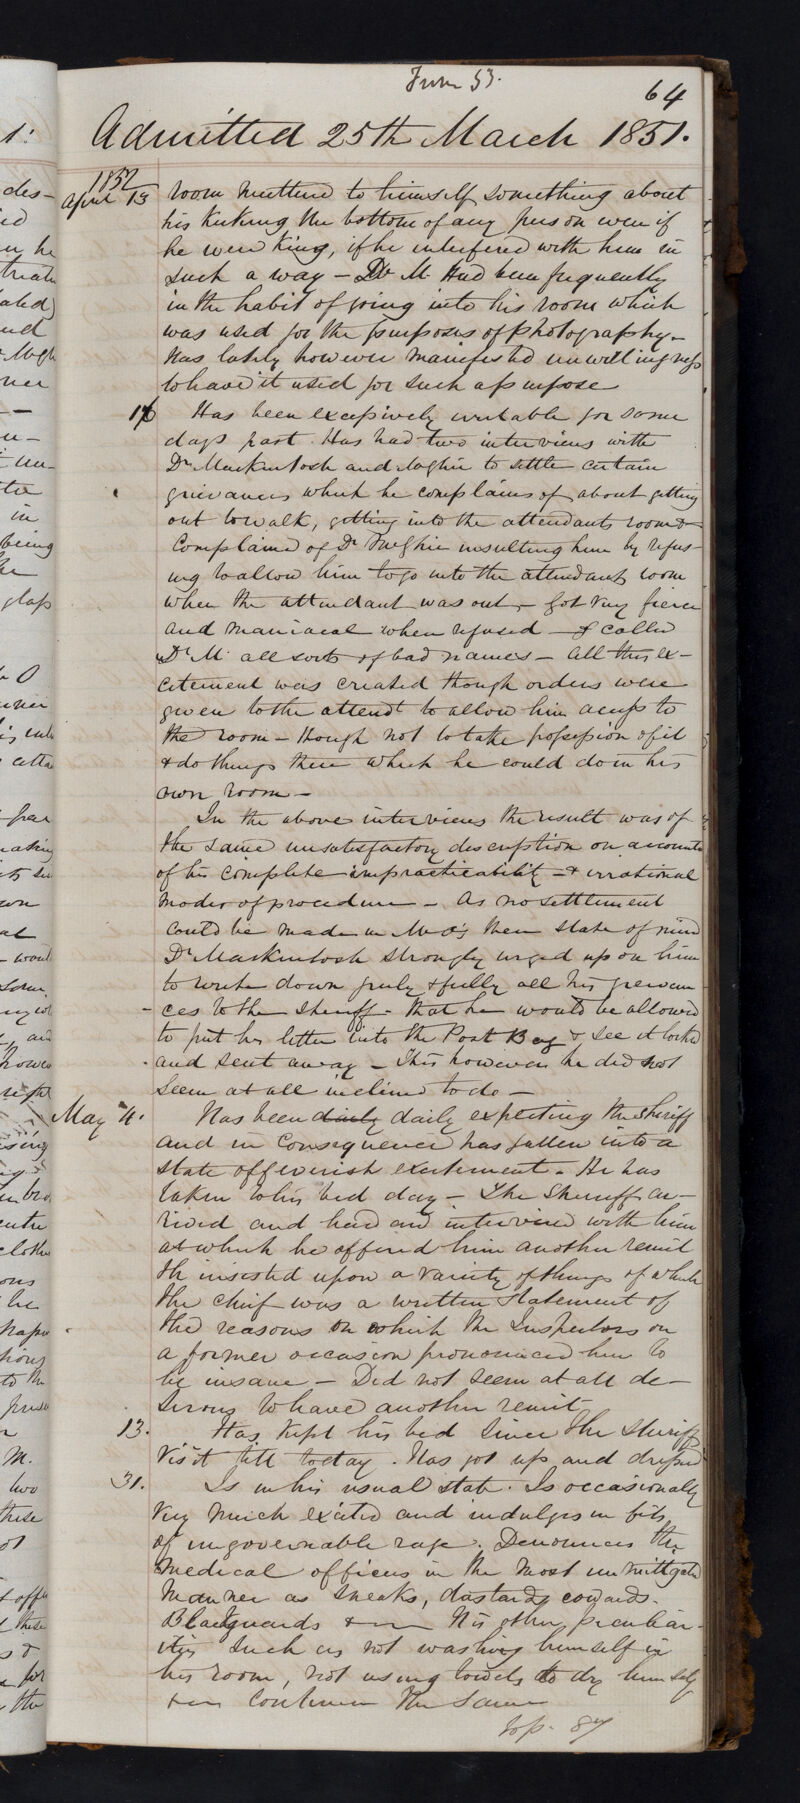 From 53.
64
Admitted 25th March 1851.
1852
April 13 room muttered to himself something about
his kicking the bottom of any person even if
he were King, if he interfered with him in
such a way – Dr M. Had been frequently
in the habit of going into his room which
was used for the purposes of photography –
Has lately however manifested unwillingness
to have it used for such a purpose
Has been excessively irritable for some
days past. Has had two interviews with
Dr Mackintosh and to settle certain
grievances which he complains of about getting
out to walk, getting into the attendants room &
complained of Dr insulting him by refus-
ing to allow him to go into the attendants room
when the attendant was out – Got very fierce
and maniacal when refused – & called
Dr M. all sorts of bad names – All this ex-
citement was created though orders were
given to the attendt to allow him access to
the room – though not to take possession of it
& do things there which he could do in his
own room –
In the above interviews the result was of
the same unsatisfactory description on account
of his complete impracticability – & irrational
modes of procedure – As no settlement
could be made in then state of mind
Dr Mackintosh strongly urged upon him
to write down freely & fully all his grievan
ces to the Sheriff – that he would be allowed
to put his letter into the Post Bag & see it locked
and sent away – This however he did not
seem at all inclined to do –
May 4. Has been daily daily expecting the Sheriff
and in consequence has fallen into a
state of feverish excitement – He has
taken to his bed day – The Sheriff ar-
rived and had an interview with him
at which he offered him another remit
He insisted upon a variety of things of which
the chief was a written statement of
the reasons on which the Inspectors on
a former occasion pronounced him to
be insane – Did not seem at all de-
sirous to have another remit
13. Has kept his bed since the Sheriffs
visit till today. Has got up and dressed
31. Is in his usual state. Is occasionally
very much excited and indulges in fits
of ungovernable rage. Denounces the
medical officers in the most unmitigated
manner as sneaks, dastards cowards.
Blackguards & His other peculiar-
ities such as not washing himself in
his room, not using towels to dry himself
continue the same
To p. 87